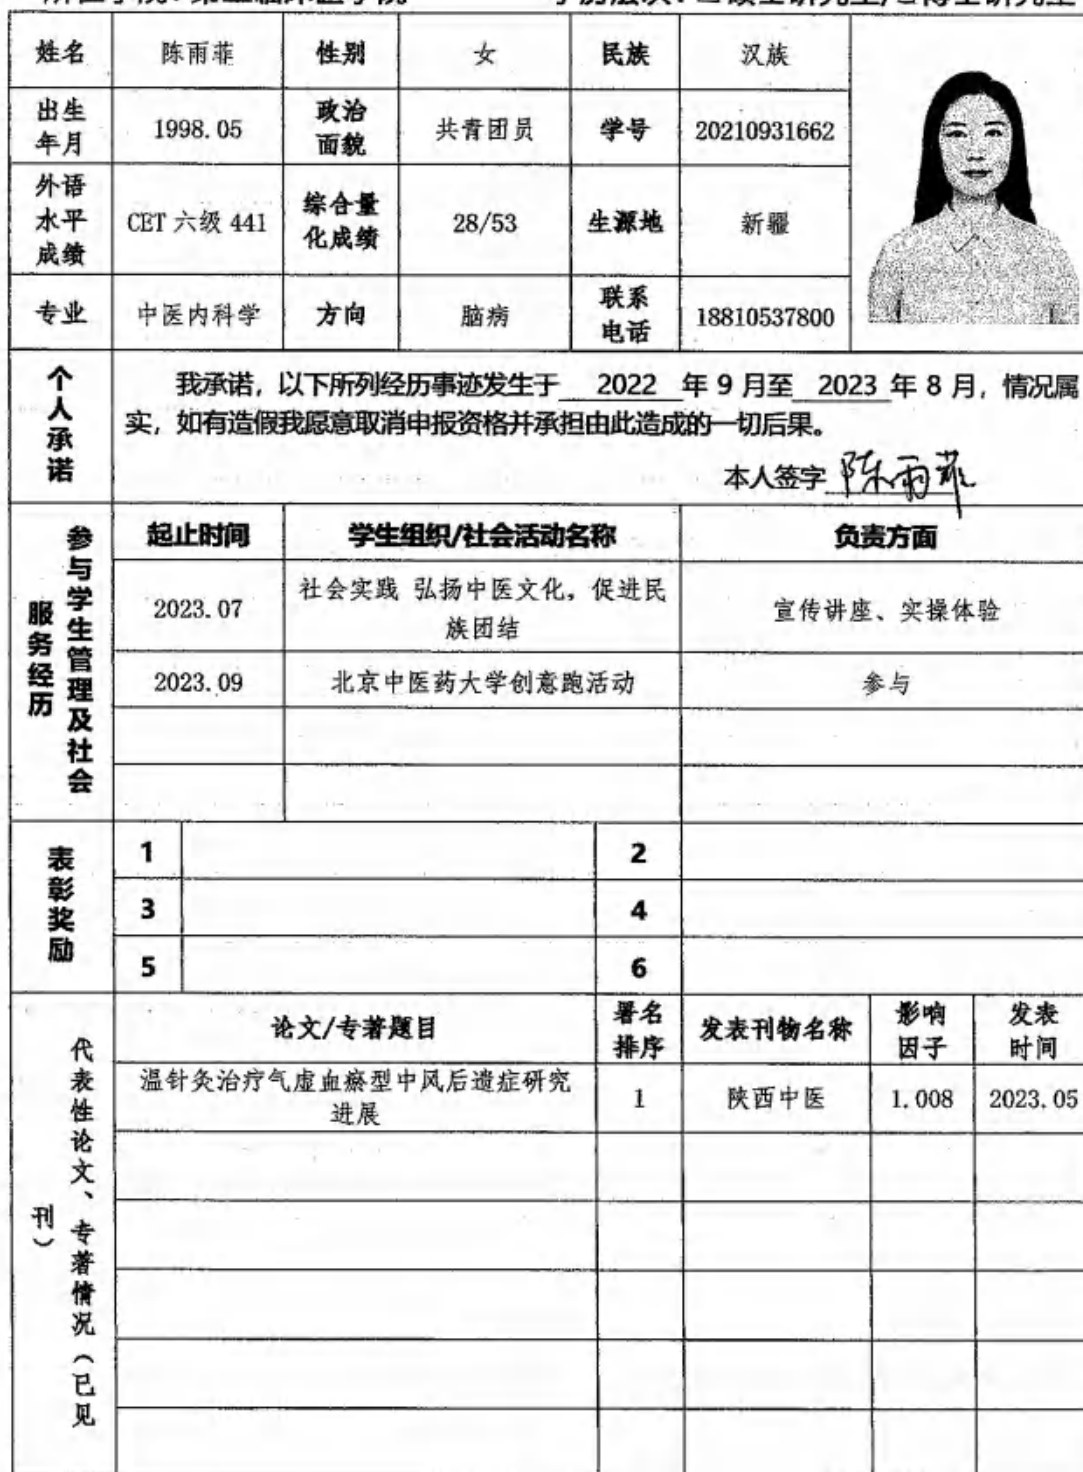 姓名 陈雨菲 性别 女 民族 汉族
出生年月 1998.05 政治面貌 共青团员 学号 20210931662
外语水平成绩 CET 六级 441 综合量化成绩 28/53 生源地 新疆
专业 中医内科学 方向 脑病 联系电话 18810537800
个人承诺
我承诺，以下所列经历事迹发生于 2022 年 9 月至 2023 年 8 月，情况属
实，如有造假我愿意取消申报资格并承担由此造成的一切后果。
本人签字 陈雨菲
参与学生管理及社会
服务经历
起止时间 学生组织/社会活动名称 负责方面
2023.07 社会实践 弘扬中医文化，促进民
族团结 宣传讲座、实操体验
2023.09 北京中医药大学创意跑活动 参与
表彰奖励
1 2
3 4
5 6
代表性论文、专著情况（已见
刊）
论文/专著题目 署名排序 发表刊物名称 影响因子 发表时间
温针灸治疗气虚血瘀型中风后遗症研究
进展 1 陕西中医 1.008 2023.05